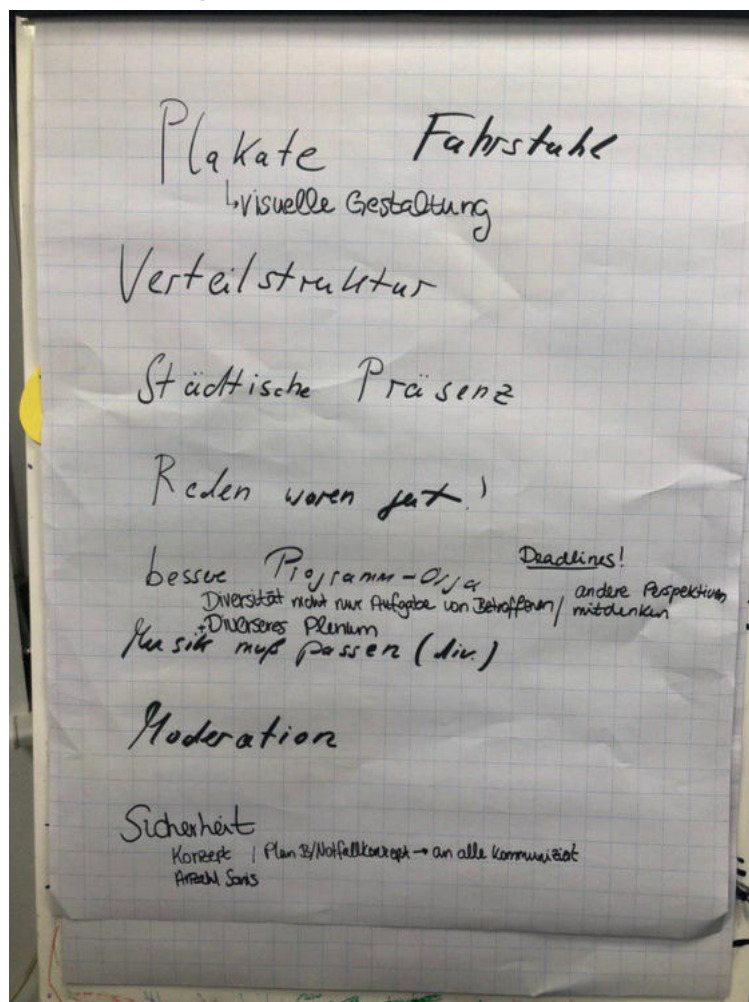 Plakate Fahrstuhl
↳ visuelle Gestaltung
Verteilstruktur
Städtische Präsenz
Reden waren gut!
bessere Programm-Orga Deadlines!
Diversität nicht nur Aufgabe von Betroffenen / andere Perspektiven mitdenken
+ Diverseres Plenum
Musik muß passen (div.)
Moderation
Sicherheit
Konzept | Plan B/Notfallkonzept → an alle kommuniziert
Anzahl Sanis